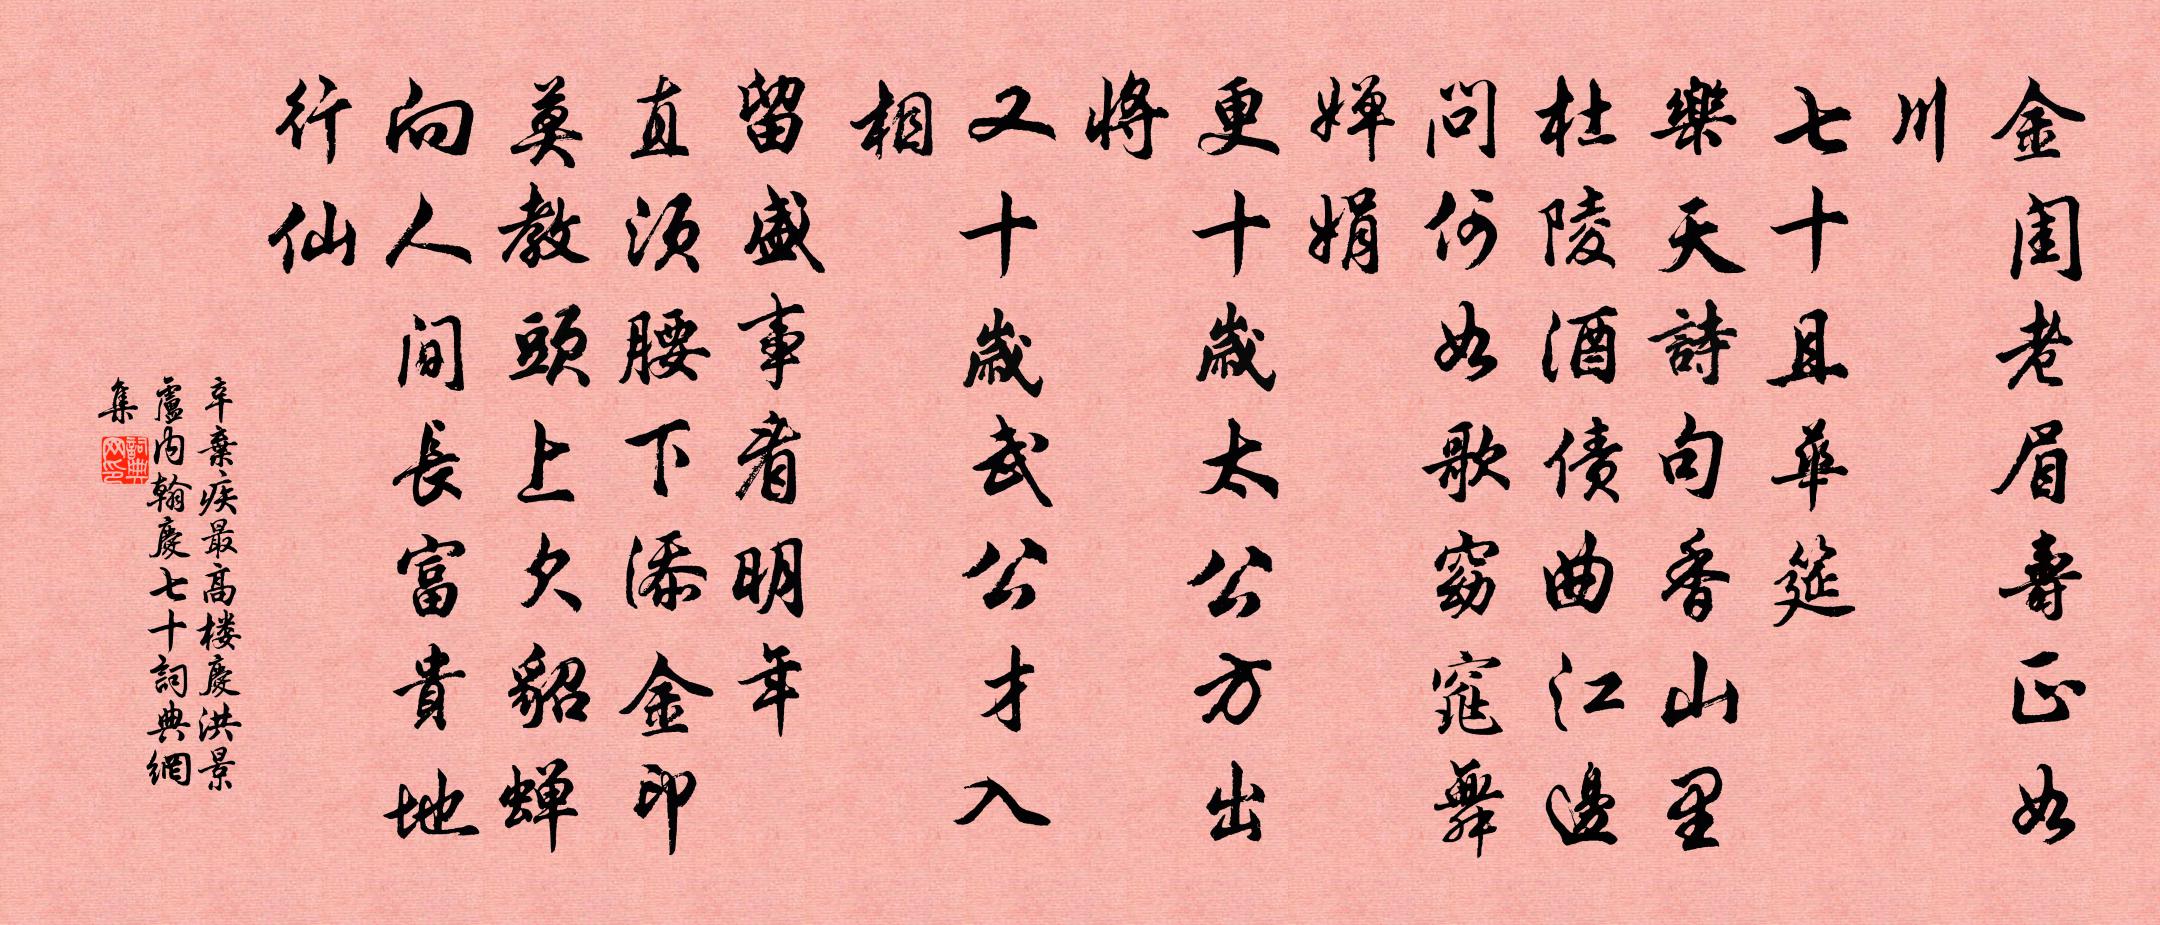 金閨老眉壽正如
川
七十且華筵
樂天詩句香山里
杜陵酒債曲江邊
問何如歌窈窕舞
嬋娟
更十歲太公方出
將
又十歲武公才入
相
留盛事看明年
直須腰下添金印
莫教頭上欠貂蟬
向人間長富貴地
行仙
辛棄疾最高楼慶洪景
盧內翰慶七十詞典網
集
詞典網印